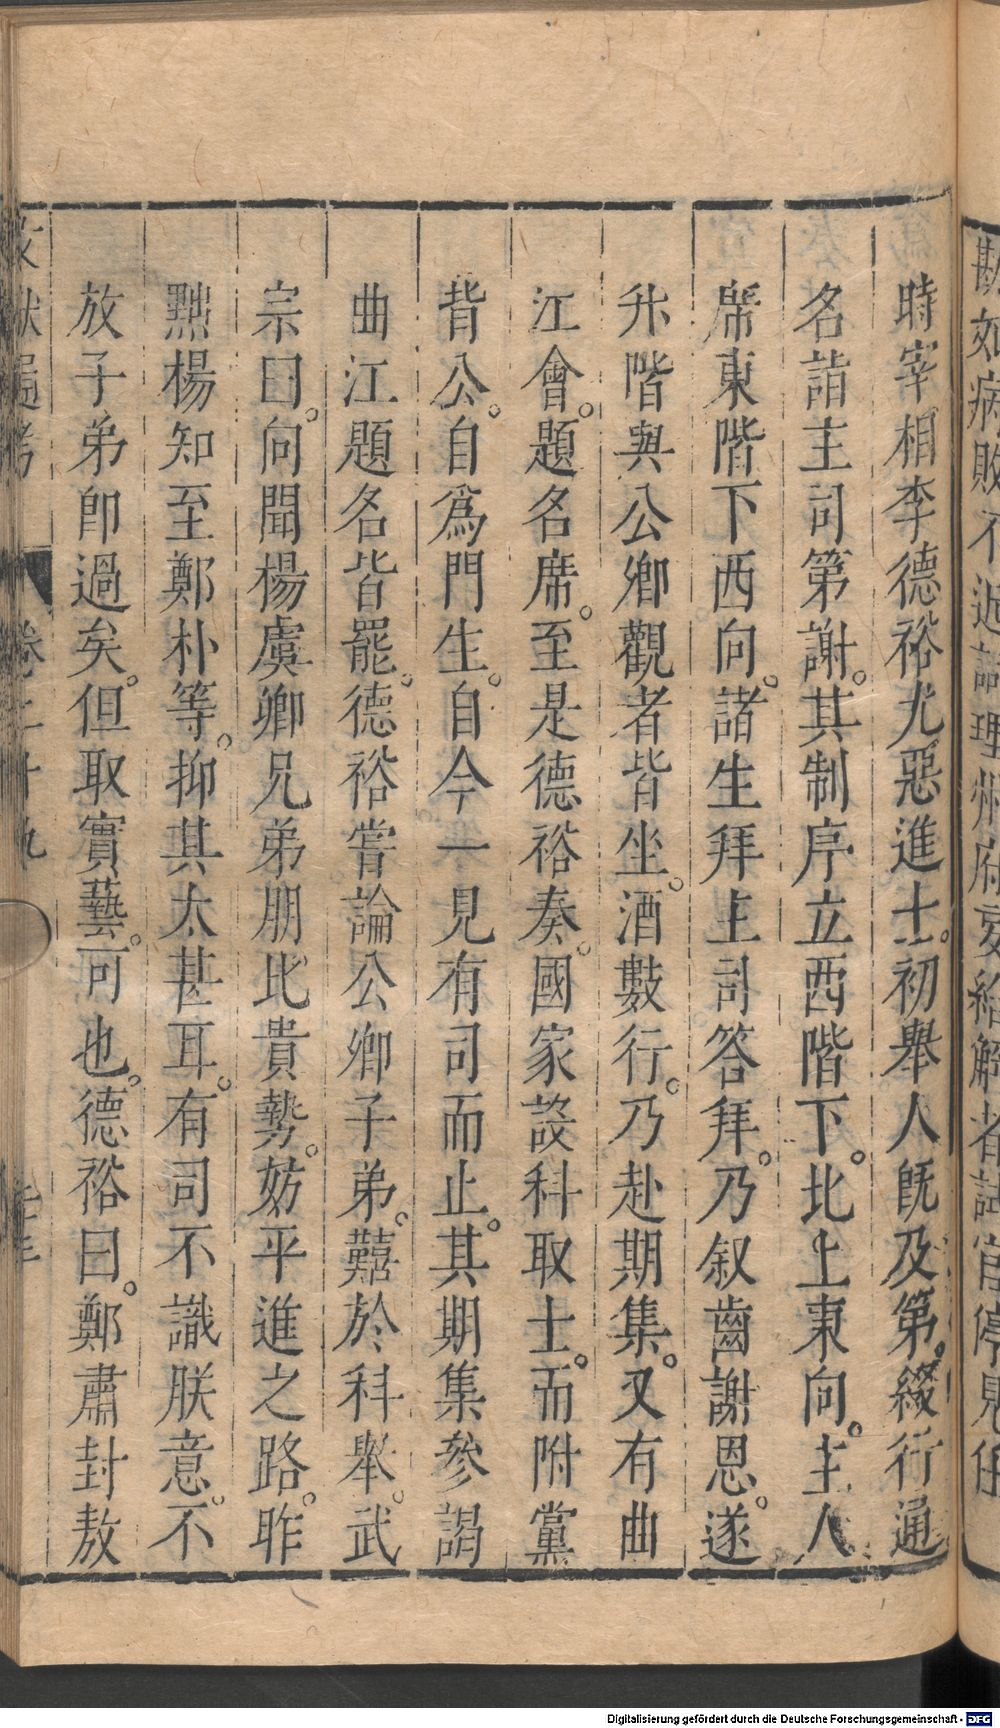 時宰相李德裕尤惡進士。初舉人旣及第。綴行通
名詣主司第謝。其制序立西階下。北上東向。主人
席東階下西向。諸生拜主司答拜。乃叙齒謝恩。遂
升階與公卿觀者皆坐。酒數行。乃赴期集。又有曲
江會。題名席。至是德裕奏。國家設科取士。而附黨
背公。自爲門生。自今一見有司而止。其期集參謁
曲江題名皆罷。德裕嘗論公卿子弟。囏於科舉。武
宗曰。向聞楊虞卿兄弟朋比貴勢。妨平進之路。昨
黜楊知至鄭朴等。抑其太甚耳。有司不識朕意。不
放子弟卽過矣。但取實藝。可也。德裕曰。鄭肅封敖
文獻通考
卷二十九
Digitalisierung gefördert durch die Deutsche Forschungsgemeinschaft - DFG